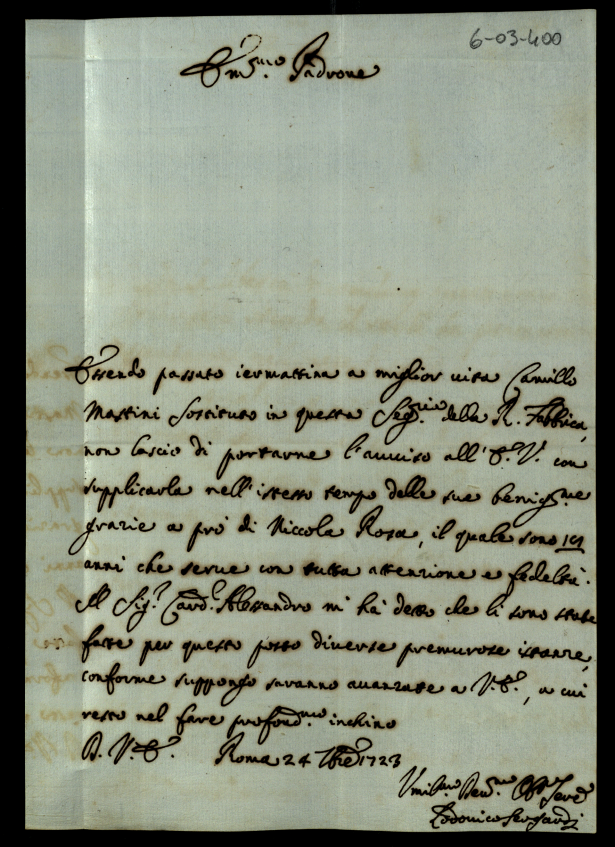 6-03-400
Em.mo Padrone
Essendo passato iermattina a miglior uita Camillo
Mastini Sostituto in questa Seg.ria della R. Fabbrica,
non lascio di portarne l'auuiso all'E.V. con
supplicarla nell'istesso tempo delle sue benig.me
grazie a prò di Niccola Rosa, il quale sono
anni che serue con tutta attenzione e fedeltà.
Il Sig.r Card.l Alessandro mi hà detto che li sono state
fatte per questo posto diuerse premurose istanze,
conforme suppongo saranno auanzate a V.E., a cui
resto nel fare profond.mo inchino
D. V. E. Roma 24 7bre 1723
Vmil.mo Deu.mo Obb. Serv.
Lodouico Sergardi